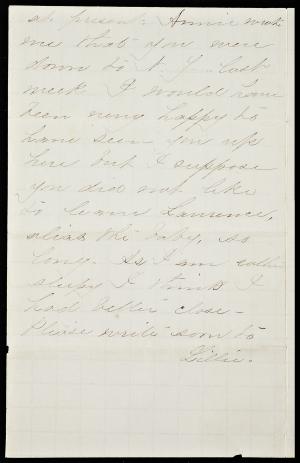 at present. Annie wrote
me that you were
down to N. Y. last
week. I would have
been very happy to
have seen you up
here but I suppose
you did not like
to leave Laurence,
alias the baby, so
long. As I am rather
sleepy I think I
had better close –
Please write soon to
Lillie.